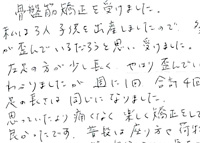 骨盤筋矯正を受けました。
私は3人子供を出産しましたので
が歪んでいるだろうと思い受けました。
左足の方が少し長く、やはり歪んでい
わかりましたが週に1回合計4回
足の長さは同じになりました。
思っていたより痛くなく楽しく矯正をして
良かったです。普段は座り方や荷物